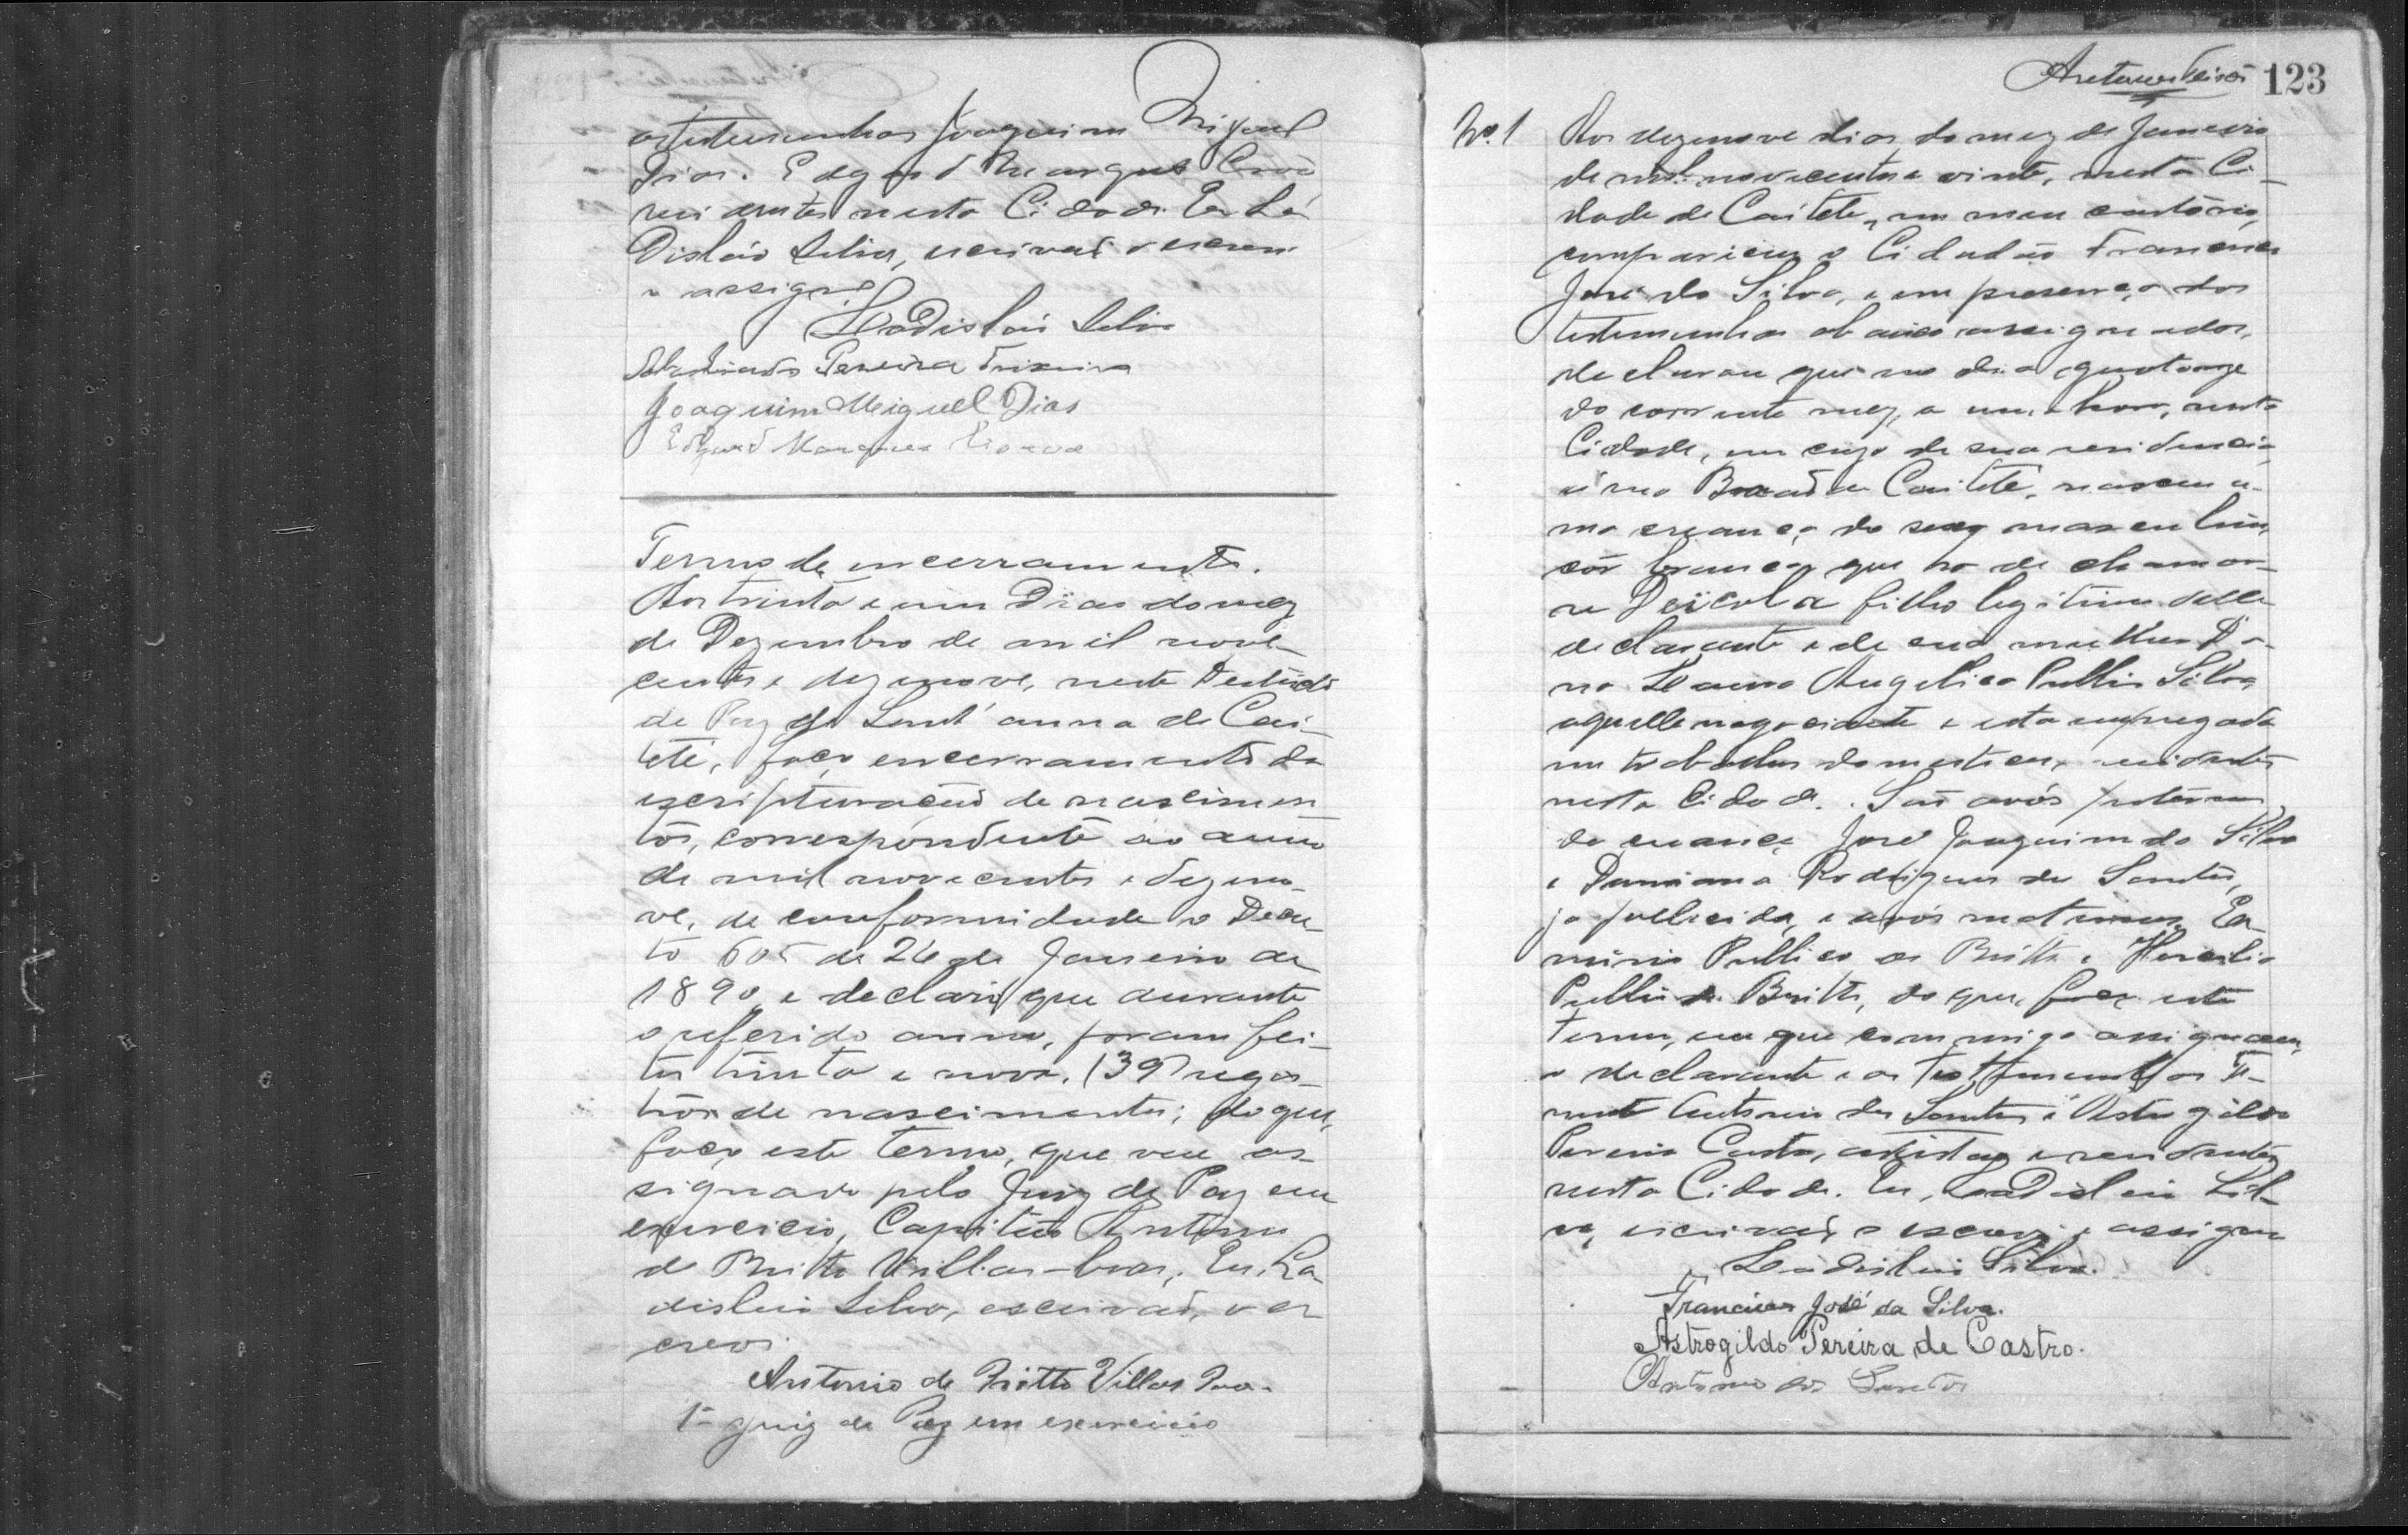 as testemunhas Joaquim Miguel
Dias. E Edgard Marques
residentes nesta Cidade. Eu La
Disláo Silva, escrivaõ o escrevi
e assigno
Ladisláo Silva
Pereira Teixeira
Joaquim Miguel Dias
Edgard Marques
Termo de encerramento.
Aos trinta e um Dias do mez
de Dezembro de mil nove-
centos e dezenove, neste Destricto
de Paz de Sant'anna de Cai-
teté, faço encerramento da
escripturaçaõ de nascimen
tos, correspondente ao anno
de mil novecentos e dezeno-
ve, de conformidade o Decre-
to 605 de 26 de Janeiro de
1890, e declaro que durante
o referido anno, foram fei-
tos trinta e nove, (39) regis-
tros de nascimentos; do que,
faço este termo, que vae as-
signado pelo Juiz de Paz em
exercicio, Capitão Antonio
de Britto Villas-boas, Eu, La
disláo Silva, escrivaõ, o es
crevi.
Antonio de Britto Villas Boas
1º juiz de Paz em exercicio
123
Nº. 1
Aos dezenove dias do mez de Janeiro
de mil novecentos e vinte, nesta Ci-
dade de Caiteté, em meu cartório,
compareceu o Cidadão Francisco
José da Silva, e em presença das
testemunhas abaixo assignadas,
declarou que no dia quatorze
do corrente mez, a uma hora, nesta
Cidade, em caza de sua residencia
á rua Baraõ de Caiteté, nasceu u-
ma creança do sexo masculino,
côr branca, que ha de chamar-
se Deïcola filho legitimo delle
declarante e de sua mulher Do-
na Laura Angelica Publio Silva,
aquelle negociante e esta empregada
em trabalhos domesticos, residentes
nesta Cidade. Saõ avós paternos
da creança José Joaquim da Silva
e Damiana Rodrigues dos Santos,
já fallecida, e avós maternos, Er
minio Publico de Britto e Hercilia
Publio de Britto, do que, faço este
termo, em que commigo assignam,
o declarante e as testemunhas Te-
nente Antonio dos Santos e Astrogildo
Pereira Castro, artistas e residentes
nesta Cidade. Eu, Ladisláo Sil-
va, escrivaõ o escrevi e assigno
Ladisláo Silva.
Francisco José da Silva.
Astrogildo Pereira de Castro.
Antonio dos Santos